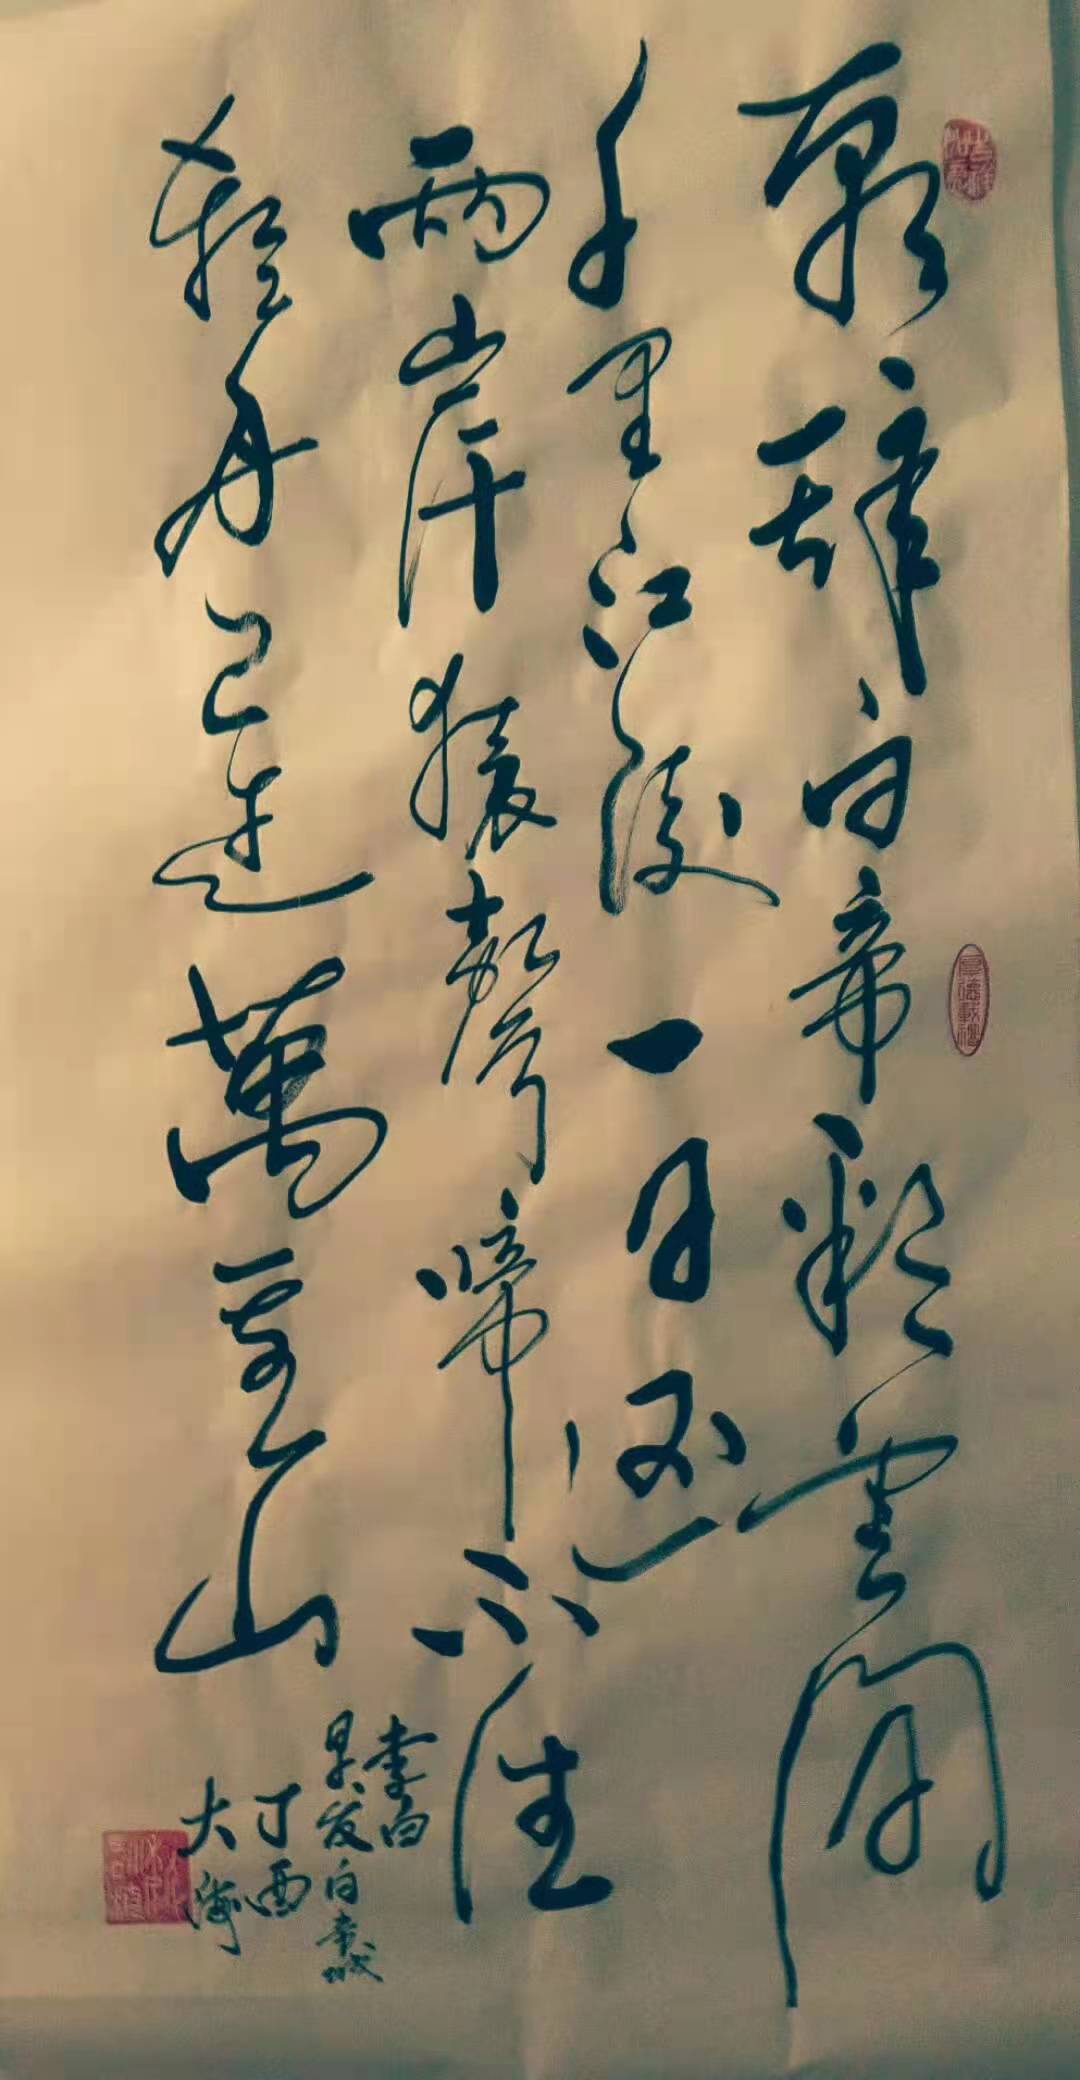 朝辞白帝彩雲間
千里江陵一日还
兩岸猿聲啼不住
輕舟已过萬重山
李白
早发白帝城
丁酉
大海